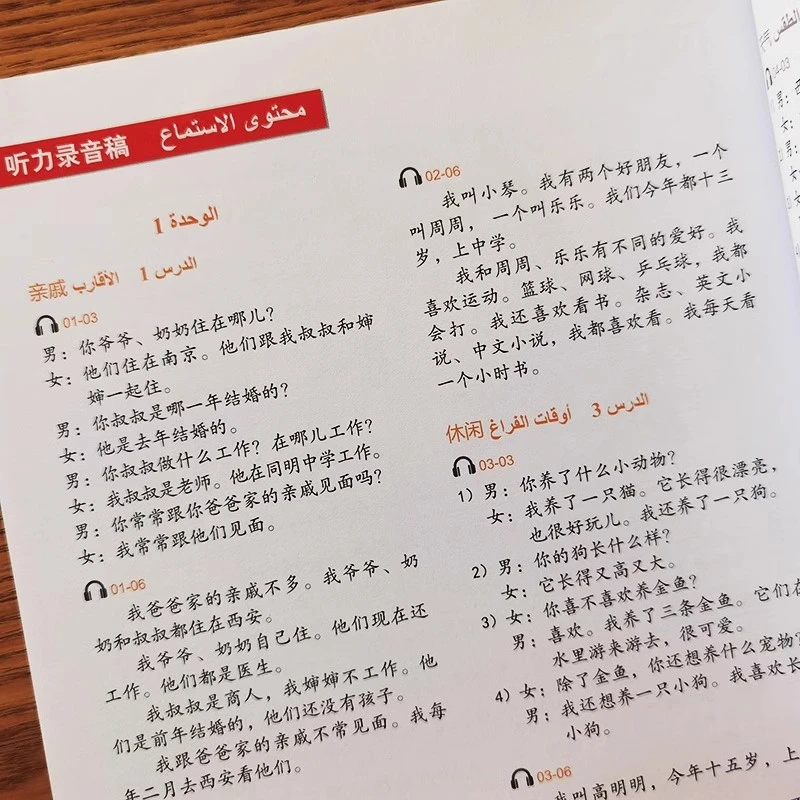 听力录音稿 محتوى الاستماع
الوحدة 1
亲戚 الأقارب الدرس 1
01-03
男：你爷爷、奶奶住在哪儿？
女：他们住在南京。他们跟我叔叔和婶
婶一起住。
男：你叔叔是哪一年结婚的？
女：他是去年结婚的。
男：你叔叔做什么工作？在哪儿工作？
女：我叔叔是老师。他在同明中学工作。
男：你常常跟你爸爸家的亲戚见面吗？
女：我常常跟他们见面。
01-06
我爸爸家的亲戚不多。我爷爷、奶
奶和叔叔都住在西安。
我爷爷、奶奶自己住。他们现在还
工作。他们都是医生。
我叔叔是商人，我婶婶不工作。他
们是前年结婚的，他们还没有孩子。
我跟爸爸家的亲戚不常见面。我每
年二月去西安看他们。
02-06
我叫小琴。我有两个好朋友，一个
叫周周，一个叫乐乐。我们今年都十三
岁，上中学。
我和周周、乐乐有不同的爱好。我
喜欢运动。篮球、网球、乒乓球，我都
会打。我还喜欢看书。杂志、英文小
说、中文小说，我都喜欢看。我每天看
一个小时书。
休闲 أوقات الفراغ الدرس 3
03-03
1）男：你养了什么小动物？
女：我养了一只猫。它长得很漂亮，
也很好玩儿。我还养了一只狗。
2）男：你的狗长什么样？
女：它长得又高又大。
3）女：你喜不喜欢养金鱼？
男：喜欢。我养了三条金鱼。它们在
水里游来游去，很可爱。
4）女：除了金鱼，你还想养什么宠物？
男：我还想养一只小狗。我喜欢长
小狗。
03-06
我叫高明明，今年十五岁，上
الطقس
04-03
男：
女：
男：
女：